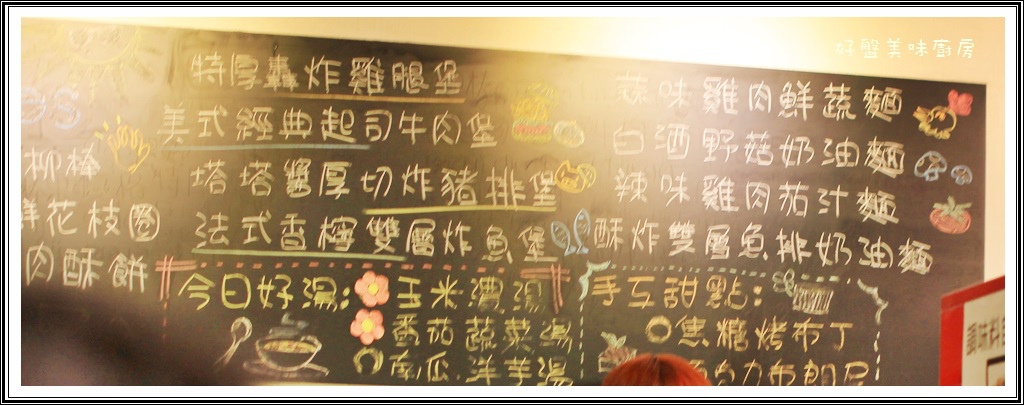 好盤美味廚房
es
柳棒
鮮花枝圈
肉酥餅
特厚轟炸雞腿堡
美式經典起司牛肉堡
塔塔醬厚切炸豬排堡
法式香檸雙層炸魚堡
蒜味雞肉鮮蔬麵
白酒野菇奶油麵
辣味雞肉茄汁麵
酥炸雙層魚排奶油麵
今日好湯:
玉米濃湯
番茄蔬菜湯
南瓜洋芋湯
手工甜點:
焦糖烤布丁
巧克力布朗尼
調味料